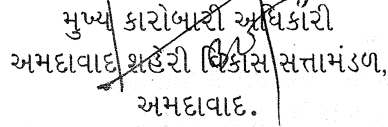 મુખ્ય કારોબારી અધિકારી
અમદાવાદ શહેરી વિકાસ સત્તામંડળ,
અમદાવાદ.